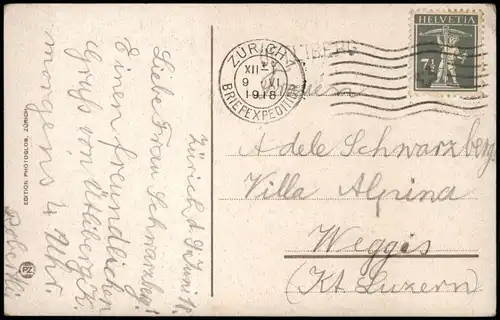 Zürich d. 9 Juni 18.
Liebe Frau Schwarzberg!
Einen freundlichen
Gruss von Ütliberg K.
morgens 4 Uhr.
EDITION PHOTOGLOB, ZÜRICH.
PZ
ZÜRICH 1
XII-
9 VI
1918
BRIEFEXPEDITION
HELVETIA
7½
Adele Schwarzberg
Villa Alpina
Weggis
(Kt. Luzern)